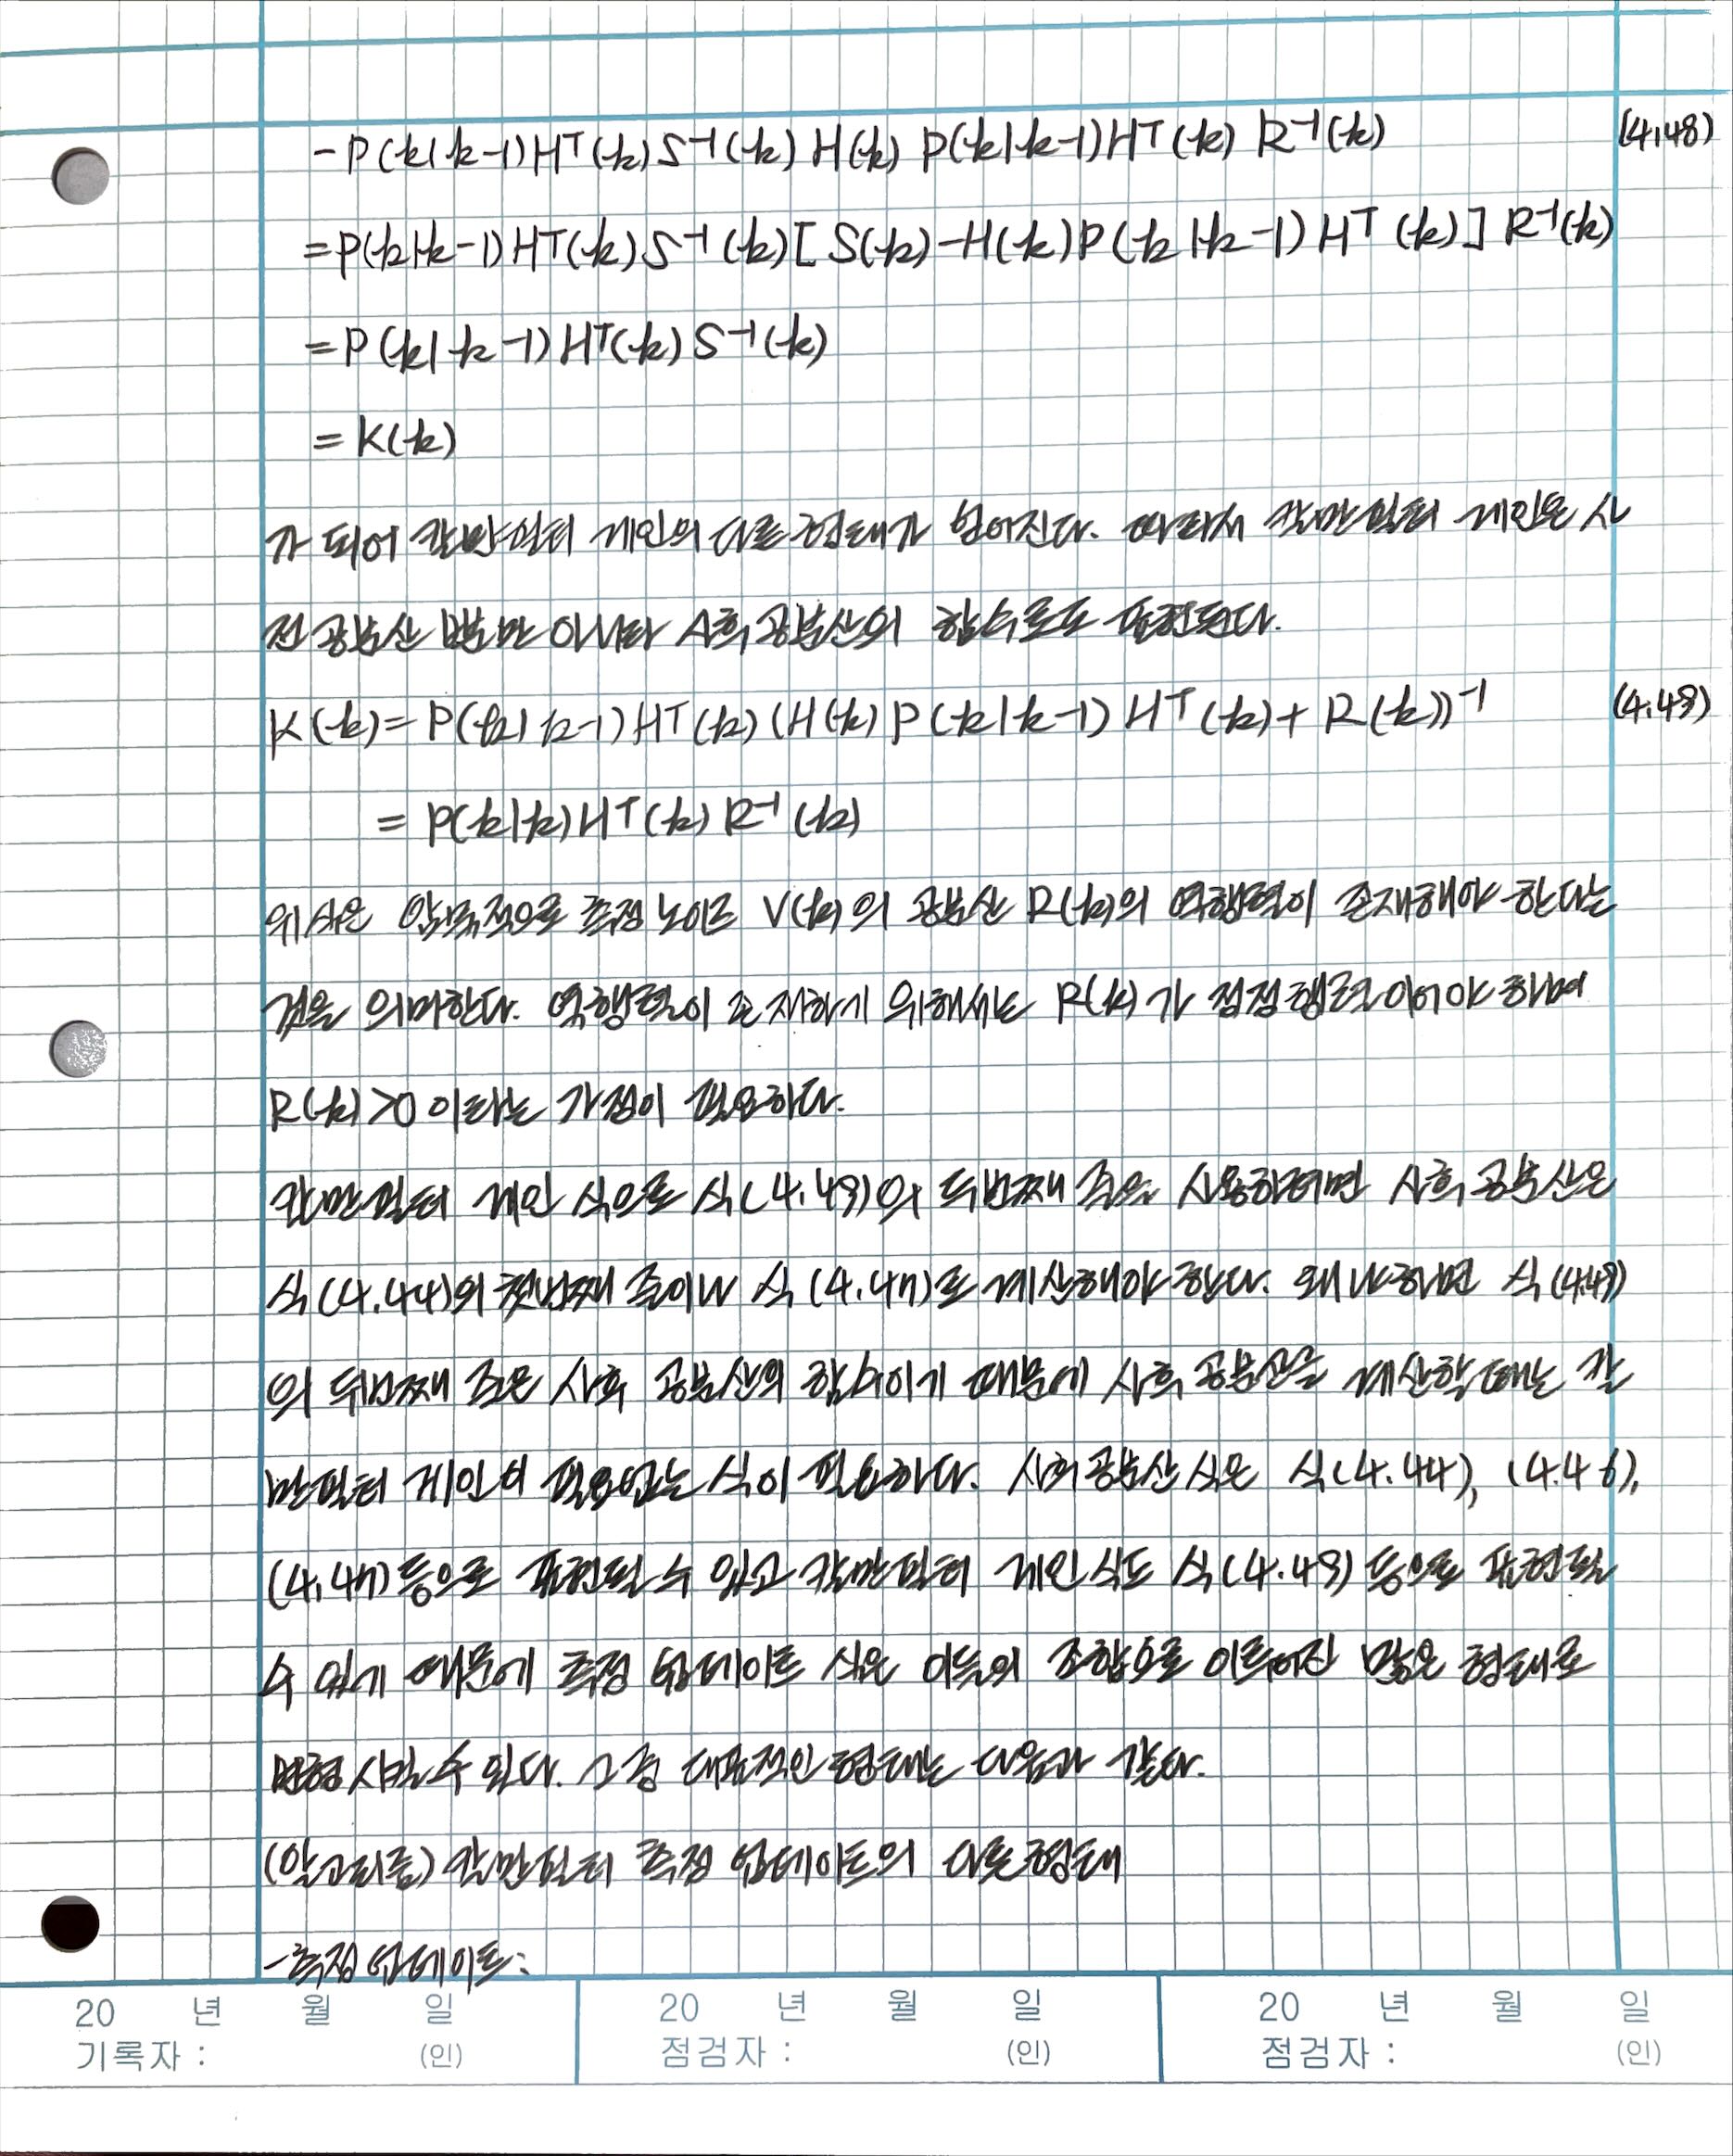 -P(k|k-1)Hᵀ(k)S⁻¹(k)H(k)P(k|k-1)Hᵀ(k)R⁻¹(k) (4.48)
=P(k|k-1)Hᵀ(k)S⁻¹(k)[S(k)-H(k)P(k|k-1)Hᵀ(k)]R⁻¹(k)
=P(k|k-1)Hᵀ(k)S⁻¹(k)
=K(k)
가 되어 칼만필터 게인의 다른 형태가 얻어진다. 따라서 칼만필터 게인은 사
전 공분산 뿐만 아니라 사후 공분산의 함수로도 표현된다.
K(k)=P(k|k-1)Hᵀ(k)(H(k)P(k|k-1)Hᵀ(k)+R(k))⁻¹ (4.49)
=P(k|k)Hᵀ(k)R⁻¹(k)
위 식은 암묵적으로 측정 노이즈 V(k)의 공분산 R(k)의 역행렬이 존재해야 한다는
것을 의미한다. 역행렬이 존재하기 위해서는 R(k)가 정정행렬이어야 하며
R(k)>0 이라는 가정이 필요하다.
칼만필터 게인 식으로 식(4.49)의 두번째 줄을 사용하려면 사후 공분산은
식(4.44)의 첫번째 줄이나 식(4.47)로 계산해야 한다. 왜냐하면 식(4.49)
의 두번째 줄은 사후 공분산의 함수이기 때문에 사후 공분산을 계산할 때는 칼
만필터 게인이 필요없는 식이 필요하다. 사후 공분산 식은 식(4.44), (4.46),
(4.47)등으로 표현될 수 있고 칼만필터 게인 식도 식(4.49)등으로 표현될
수 있기 때문에 측정 업데이트 식은 이들의 조합으로 이루어진 많은 형태로
변형시킬 수 있다. 그중 대표적인 형태는 다음과 같다.
(알고리즘) 칼만필터 측정 업데이트의 다른 형태
-측정 업데이트:
20 년 월 일 20 년 월 일 20 년 월 일
기록자 : (인) 점검자 : (인) 점검자 : (인)